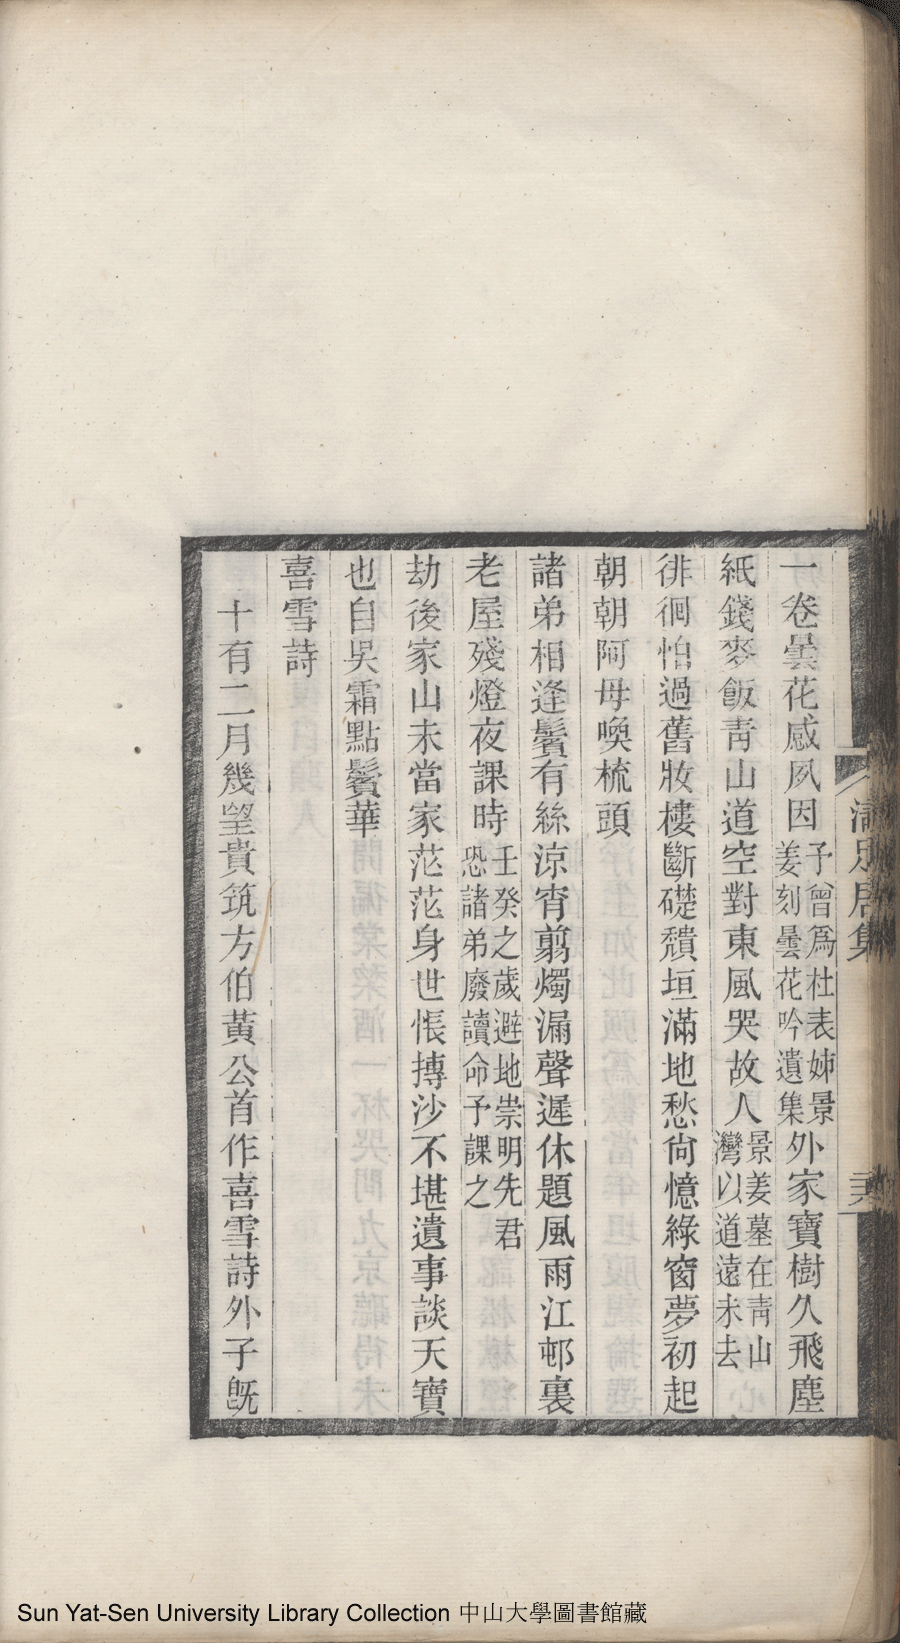 一卷曇花感夙因予曾爲杜表姊景姜刻曇花吟遺集外家寶樹久飛塵
紙錢麥飯靑山道空對東風哭故人景姜墓在靑山灣以道遠未去
徘徊怕過舊妝樓斷礎穨垣滿地愁尙憶綠窗夢初起
朝朝阿母喚梳頭
諸弟相逢鬢有絲涼宵翦燭漏聲遲休題風雨江邨裏
老屋殘燈夜課時壬癸之歲避地崇明先君恐諸弟廢讀命予課之
劫後家山未當家茫茫身世悵摶沙不堪遺事談天寶
也自吳霜點鬢華
喜雪詩
十有二月幾望貴筑方伯黃公首作喜雪詩外子旣
Sun Yat-Sen University Library Collection 中山大學圖書館藏